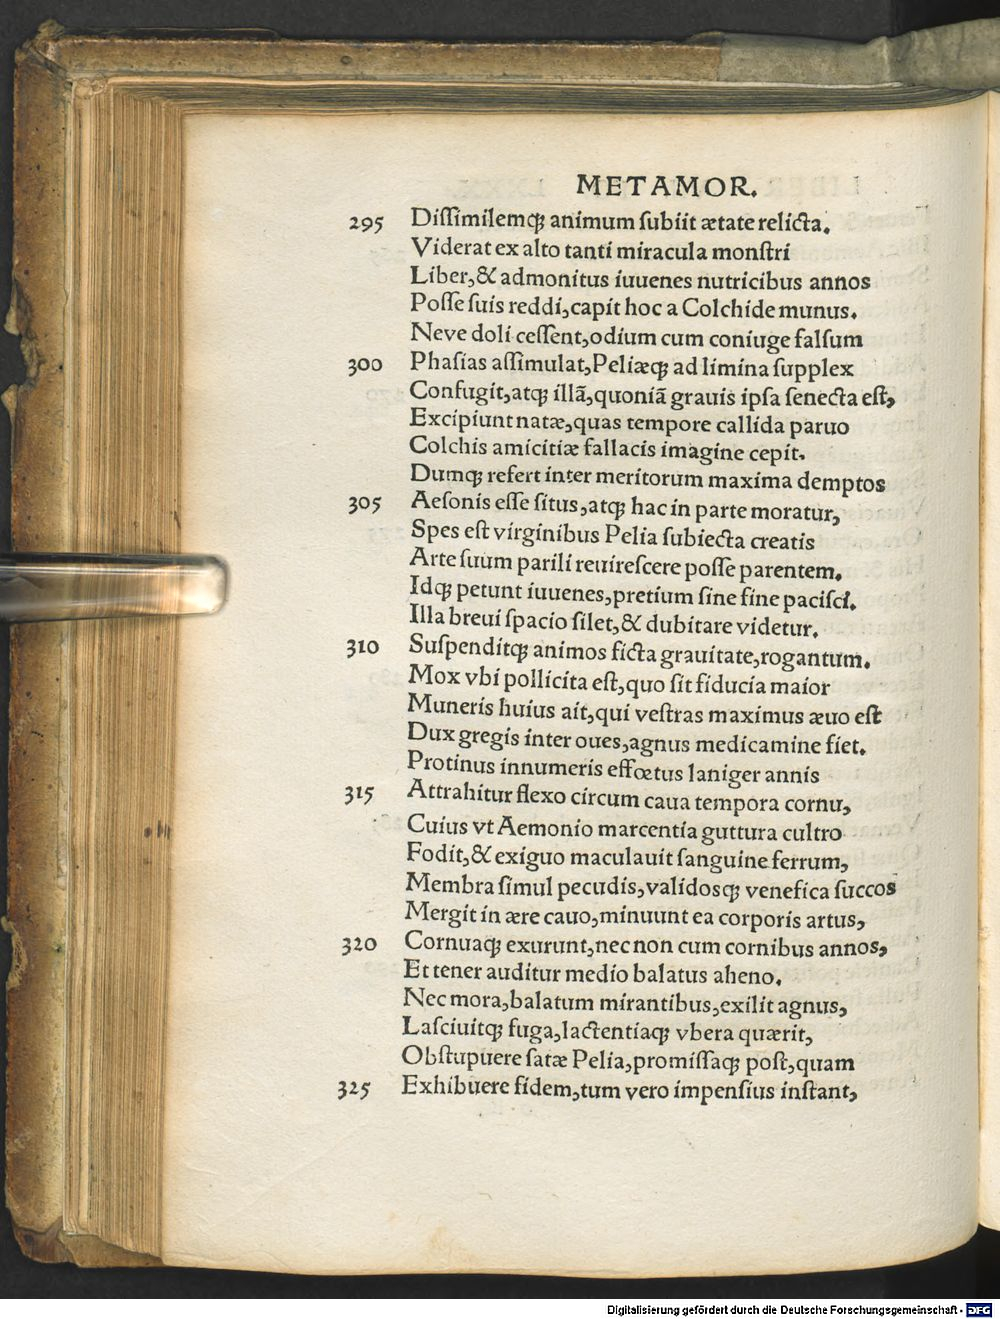 METAMOR.
295 Dissimilemqꝫ animum subiit ætate relicta.
Viderat ex alto tanti miracula monstri
Liber, & admonitus iuuenes nutricibus annos
Posse suis reddi, capit hoc a Colchide munus.
Neve doli cessent, odium cum coniuge falsum
300 Phasias assimulat, Peliæqꝫ ad limina supplex
Confugit, atqꝫ illã, quoniã grauis ipsa senecta est,
Excipiunt natæ, quas tempore callida paruo
Colchis amicitiæ fallacis imagine cepit.
Dumqꝫ refert inter meritorum maxima demptos
305 Aesonis esse situs, atqꝫ hac in parte moratur,
Spes est virginibus Pelia subiecta creatis
Arte suum parili reuirescere posse parentem.
Idqꝫ petunt iuuenes, pretium sine fine pacisci.
Illa breui spacio silet, & dubitare videtur.
310 Suspenditqꝫ animos ficta grauitate, rogantum.
Mox vbi pollicita est, quo sit fiducia maior
Muneris huius ait, qui vestras maximus æuo est
Dux gregis inter oues, agnus medicamine fiet.
Protinus innumeris effœtus laniger annis
315 Attrahitur flexo circum caua tempora cornu,
Cuius vt Aemonio marcentia guttura cultro
Fodit, & exiguo maculauit sanguine ferrum,
Membra simul pecudis, validosqꝫ venefica succos
Mergit in ære cauo, minuunt ea corporis artus,
320 Cornuaqꝫ exurunt, nec non cum cornibus annos,
Et tener auditur medio balatus aheno.
Nec mora, balatum mirantibus, exilit agnus,
Lasciuitqꝫ fuga, lactentiaqꝫ vbera quærit,
Obstupuere satæ Pelia, promissaqꝫ post, quam
325 Exhibuere fidem, tum vero impensius instant,
Digitalisierung gefördert durch die Deutsche Forschungsgemeinschaft - DFG